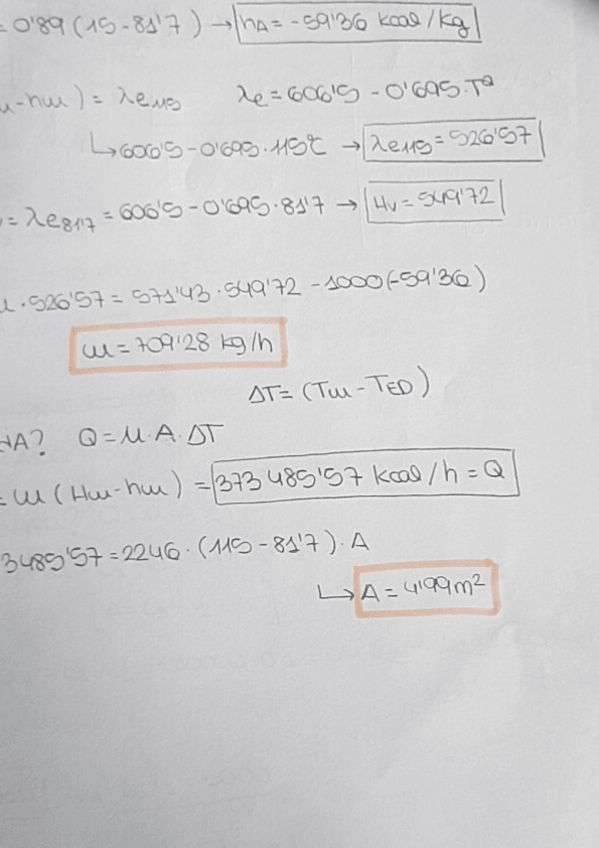 = 0'89 (15 - 81'7) → hA = -59'36 kcal/kg
u - hw) = λe115 λe = 606'5 - 0'695·Tª
↳ 606'5 - 0'695·115℃ → λe115 = 526'57
= λe81'7 = 606'5 - 0'695·81'7 → Hv = 549'72
·526'57 = 571'43·549'72 - 1000(-59'36)
w = 709'28 kg/h
ΔT = (Tw - TED)
A? Q = U·A·ΔT
= w(Hw - hw) = 373 485'57 kcal/h = Q
3485'57 = 2246·(115 - 81'7)·A
↳ A = 4'99 m²